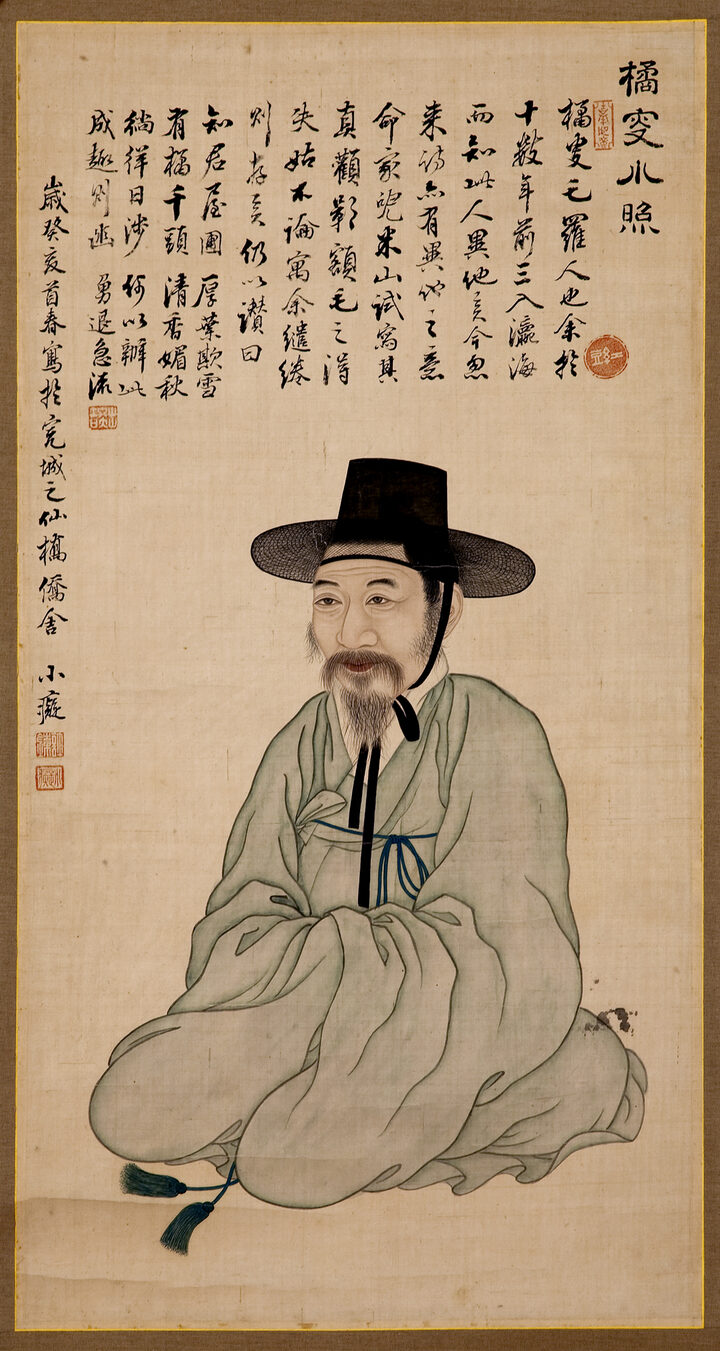 橘叟小照
橘叟乇羅人也余於
十數年前三入瀛海
而知此人異他矣今忽
來訪亦有異他之意
命家兒米山試寫其
真顴影額毛之得
失姑不論寓余繾綣
則存矣仍以讚曰
知君屋圃 厚葉欺雪
有橘千頭 清香媚秋
徜徉日涉 何以辦此
成趣則幽 勇退急流
歲癸亥首春寫於完城之仙橋僑舍 小癡